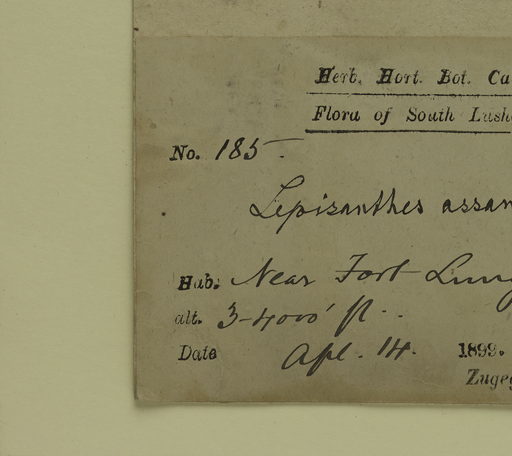 Herb. Hort. Bot. Ca
Flora of South Lush
No. 185.
Lepisanthes assam
Hab. Near Fort Lung
alt. 3-4000' ft..
Date Apl. 14. 1899.
Zuge